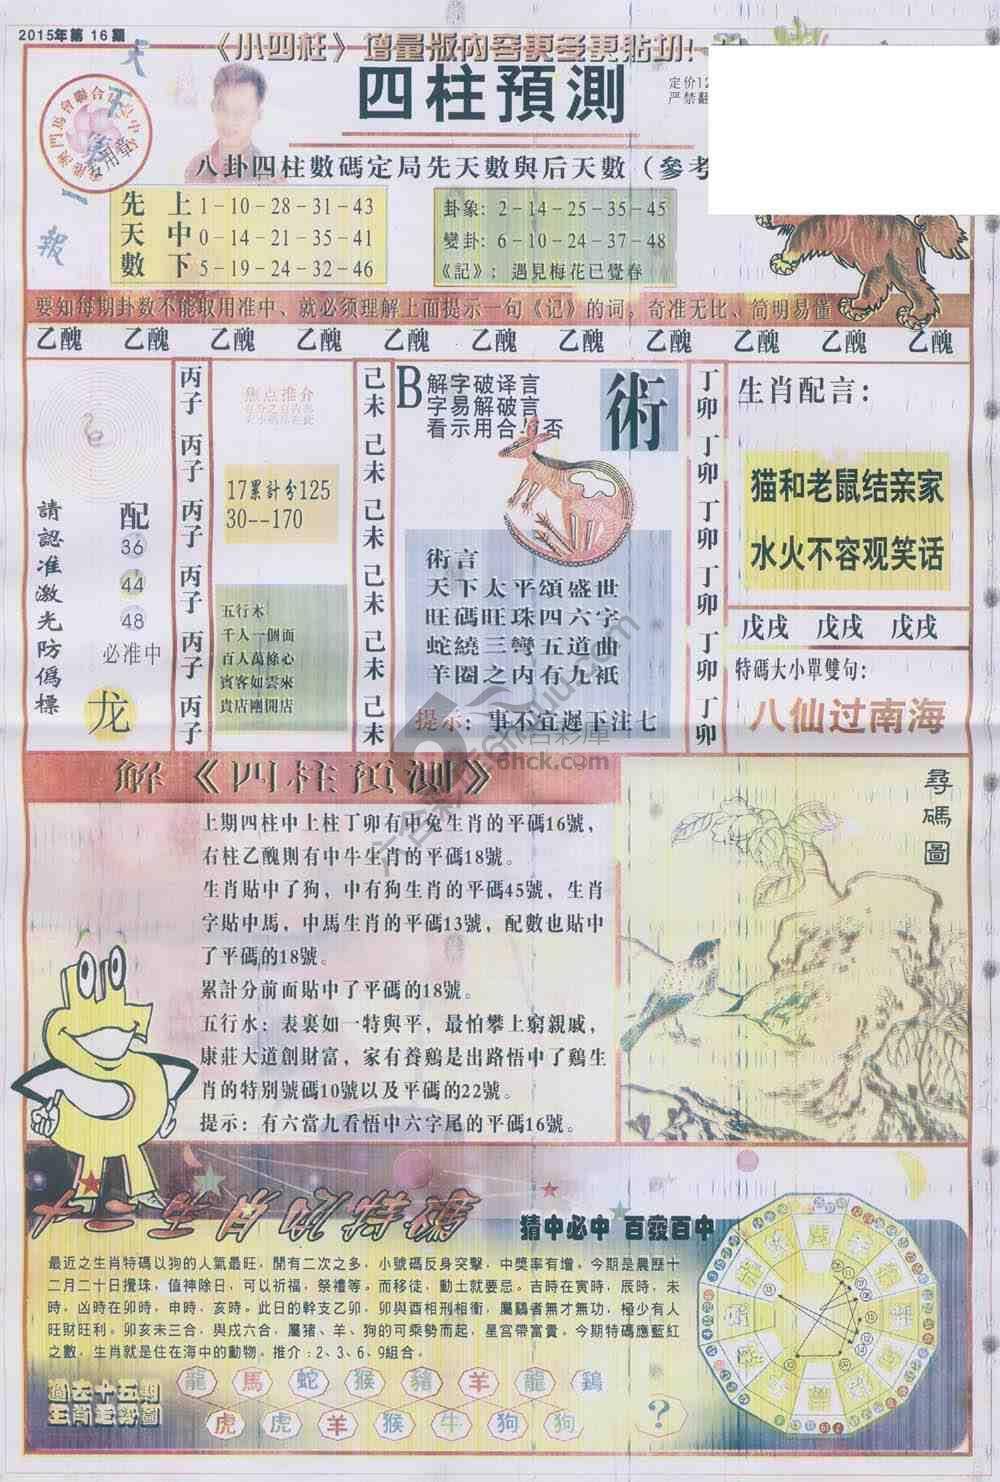 2015年第16期
《小四柱》增量版内容更多更贴切!
四柱預測
定价12
严禁翻
天
下
一
報
八卦四柱數碼定局先天數與后天數（參考
先天數
上 1-10-28-31-43
中 0-14-21-35-41
下 5-19-24-32-46
卦象: 2-14-25-35-45
變卦: 6-10-24-37-48
《記》: 遇見梅花已覺春
要知每期卦数不能取用准中、就必须理解上面提示一句《记》的词，奇准无比、简明易懂
乙醜 乙醜 乙醜 乙醜 乙醜 乙醜 乙醜 乙醜 乙醜 乙醜 乙醜
請認准激光防偽標
配
36
44
48
必准中
龙
丙子 丙子 丙子 丙子 丙子 丙子
焦点推介
17累計分125
30--170
五行木
千人一個面
百人萬條心
賓客如雲來
貴店團開店
己未 己未 己未 己未 己未 己未
B
解字破译言
字易解破言
看示用合与否
術
術言
天下太平頌盛世
旺碼旺珠四六字
蛇繞三彎五道曲
羊圈之内有九祇
提示: 事不宜遲下注七
丁卯 丁卯 丁卯 丁卯 丁卯 丁卯
生肖配言:
猫和老鼠结亲家
水火不容观笑话
戊戌 戊戌 戊戌
特碼大小單雙句:
八仙过南海
解《四柱預測》
上期四柱中上柱丁卯有中兔生肖的平碼16號，
右柱乙醜則有中牛生肖的平碼18號。
生肖貼中了狗，中有狗生肖的平碼45號，生肖
字貼中馬，中馬生肖的平碼13號，配數也貼中
了平碼的18號。
累計分前面貼中了平碼的18號。
五行水: 表裏如一特與平，最怕攀上窮親戚，
康莊大道創財富，家有養鷄是出路悟中了鷄生
肖的特别號碼10號以及平碼的22號。
提示: 有六當九看悟中六字尾的平碼16號。
尋碼圖
猜中必中 百發百中
最近之生肖特碼以狗的人氣最旺，開有二次之多，小號碼反身突擊，中獎率有增。今期是農歷十
二月二十日攪珠，值神除日，可以祈福，祭禮等。而移徒，動土就要忌。吉時在寅時，辰時，未
時，凶時在卯時，申時，亥時。此日的幹支乙卯，卯與酉相刑相衝，屬鷄者無才無功，極少有人
旺財旺利。卯亥未三合，與戌六合，屬猪、羊、狗的可乘勢而起，星宫帶富貴。今期特碼應藍紅
之數，生肖就是住在海中的動物。推介: 2、3、6、9組合。
過去十五期
生肖走勢圖
龍 馬 蛇 猴 豬 羊 龍 鷄
虎 虎 羊 猴 牛 狗 狗 ?
六合彩庫
6hck.com